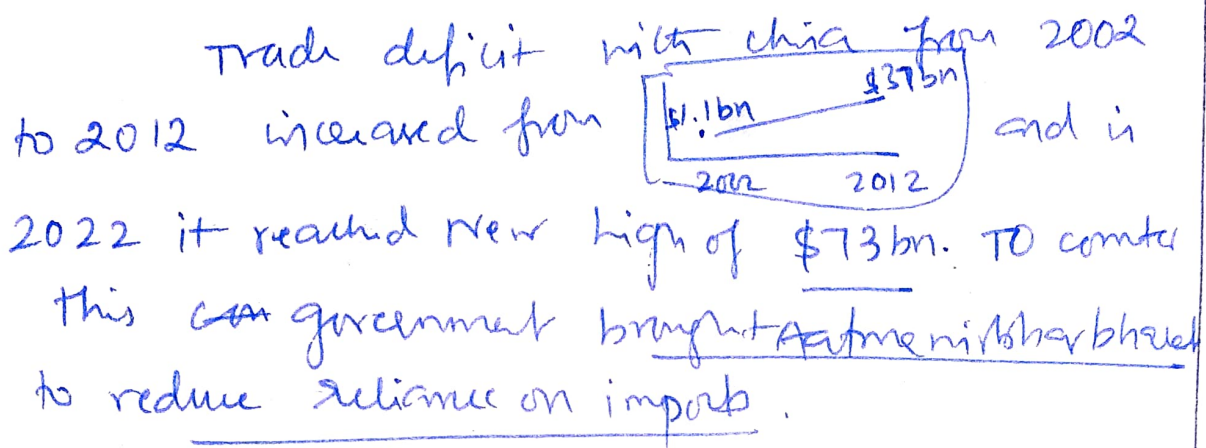 Trade deficit with china from 2002
$37bn
to 2012 increased from $1.1bn and in
2002 2012
2022 it reached New high of $73bn. TO counter
this government brought Aatmanirbhar bharat
to reduce reliance on imports.